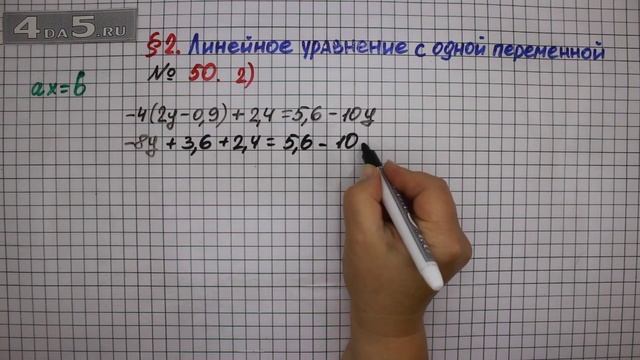 4DA5.RU
§2. Линейное уравнение с одной переменной
№ 50. 2)
ax=b
-4(2y-0,9)+2,4=5,6-10y
-8y+3,6+2,4=5,6-10